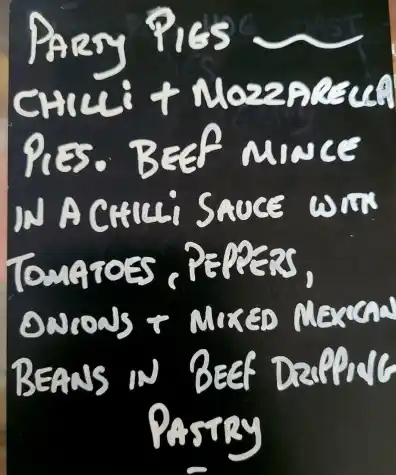 PARTY PIGS
CHILLi + MOZZARELLA
PIES. BEEF MINCE
IN A CHILLi SAUCE WITH
TOMATOES, PEPPERS,
ONIONS + MIXED MEXICAN
BEANS IN BEEF DRIPPING
PASTRY